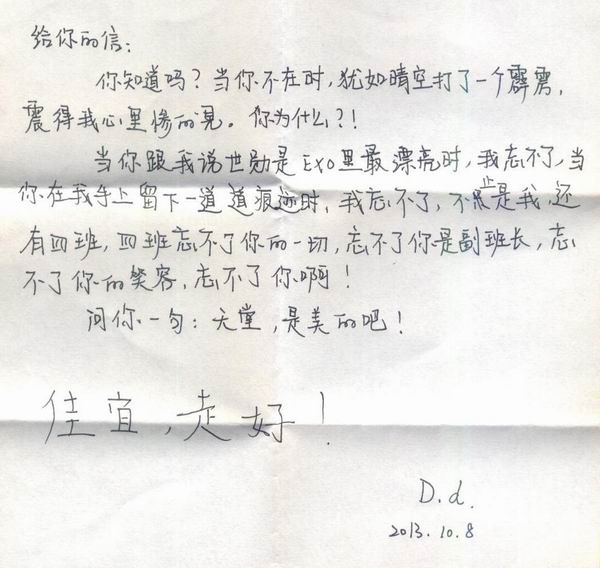 给你的信:
你知道吗?当你不在时,犹如晴空打了一个霹雳,
震得我心里惨的晃。你为什么?!
当你跟我说世勋是EXO里最漂亮时,我忘不了,当
你在我手上留下一道道痕迹时,我忘不了,不止是我,还
有四班,四班忘不了你的一切,忘不了你是副班长,忘
不了你的笑容,忘不了你啊!
问你一句:天堂,是美的吧!
佳宜,走好!
D.d.
2013.10.8